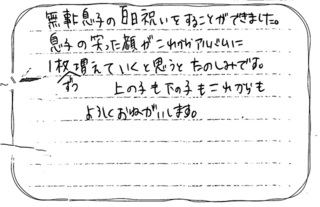 無事息子の百日祝いをすることができました。
息子の笑った顔がこれからアルバムに
1枚ずつ増えていくと思うとたのしみです。
上の子も下の子もこれからも
よろしくおねがいします。